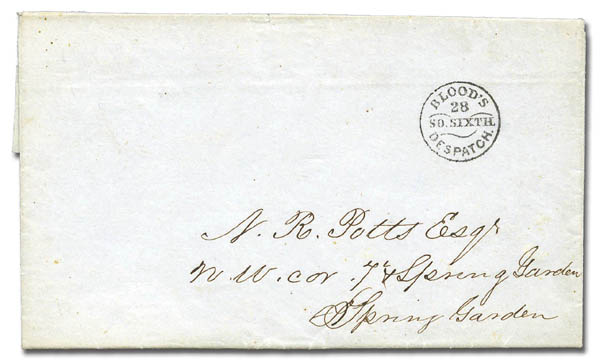 BLOOD'S
28
SO. SIXTH.
DESPATCH.
N. R. Potts Esqr
N. W. cor. 7th & Spring Garden
Spring Garden